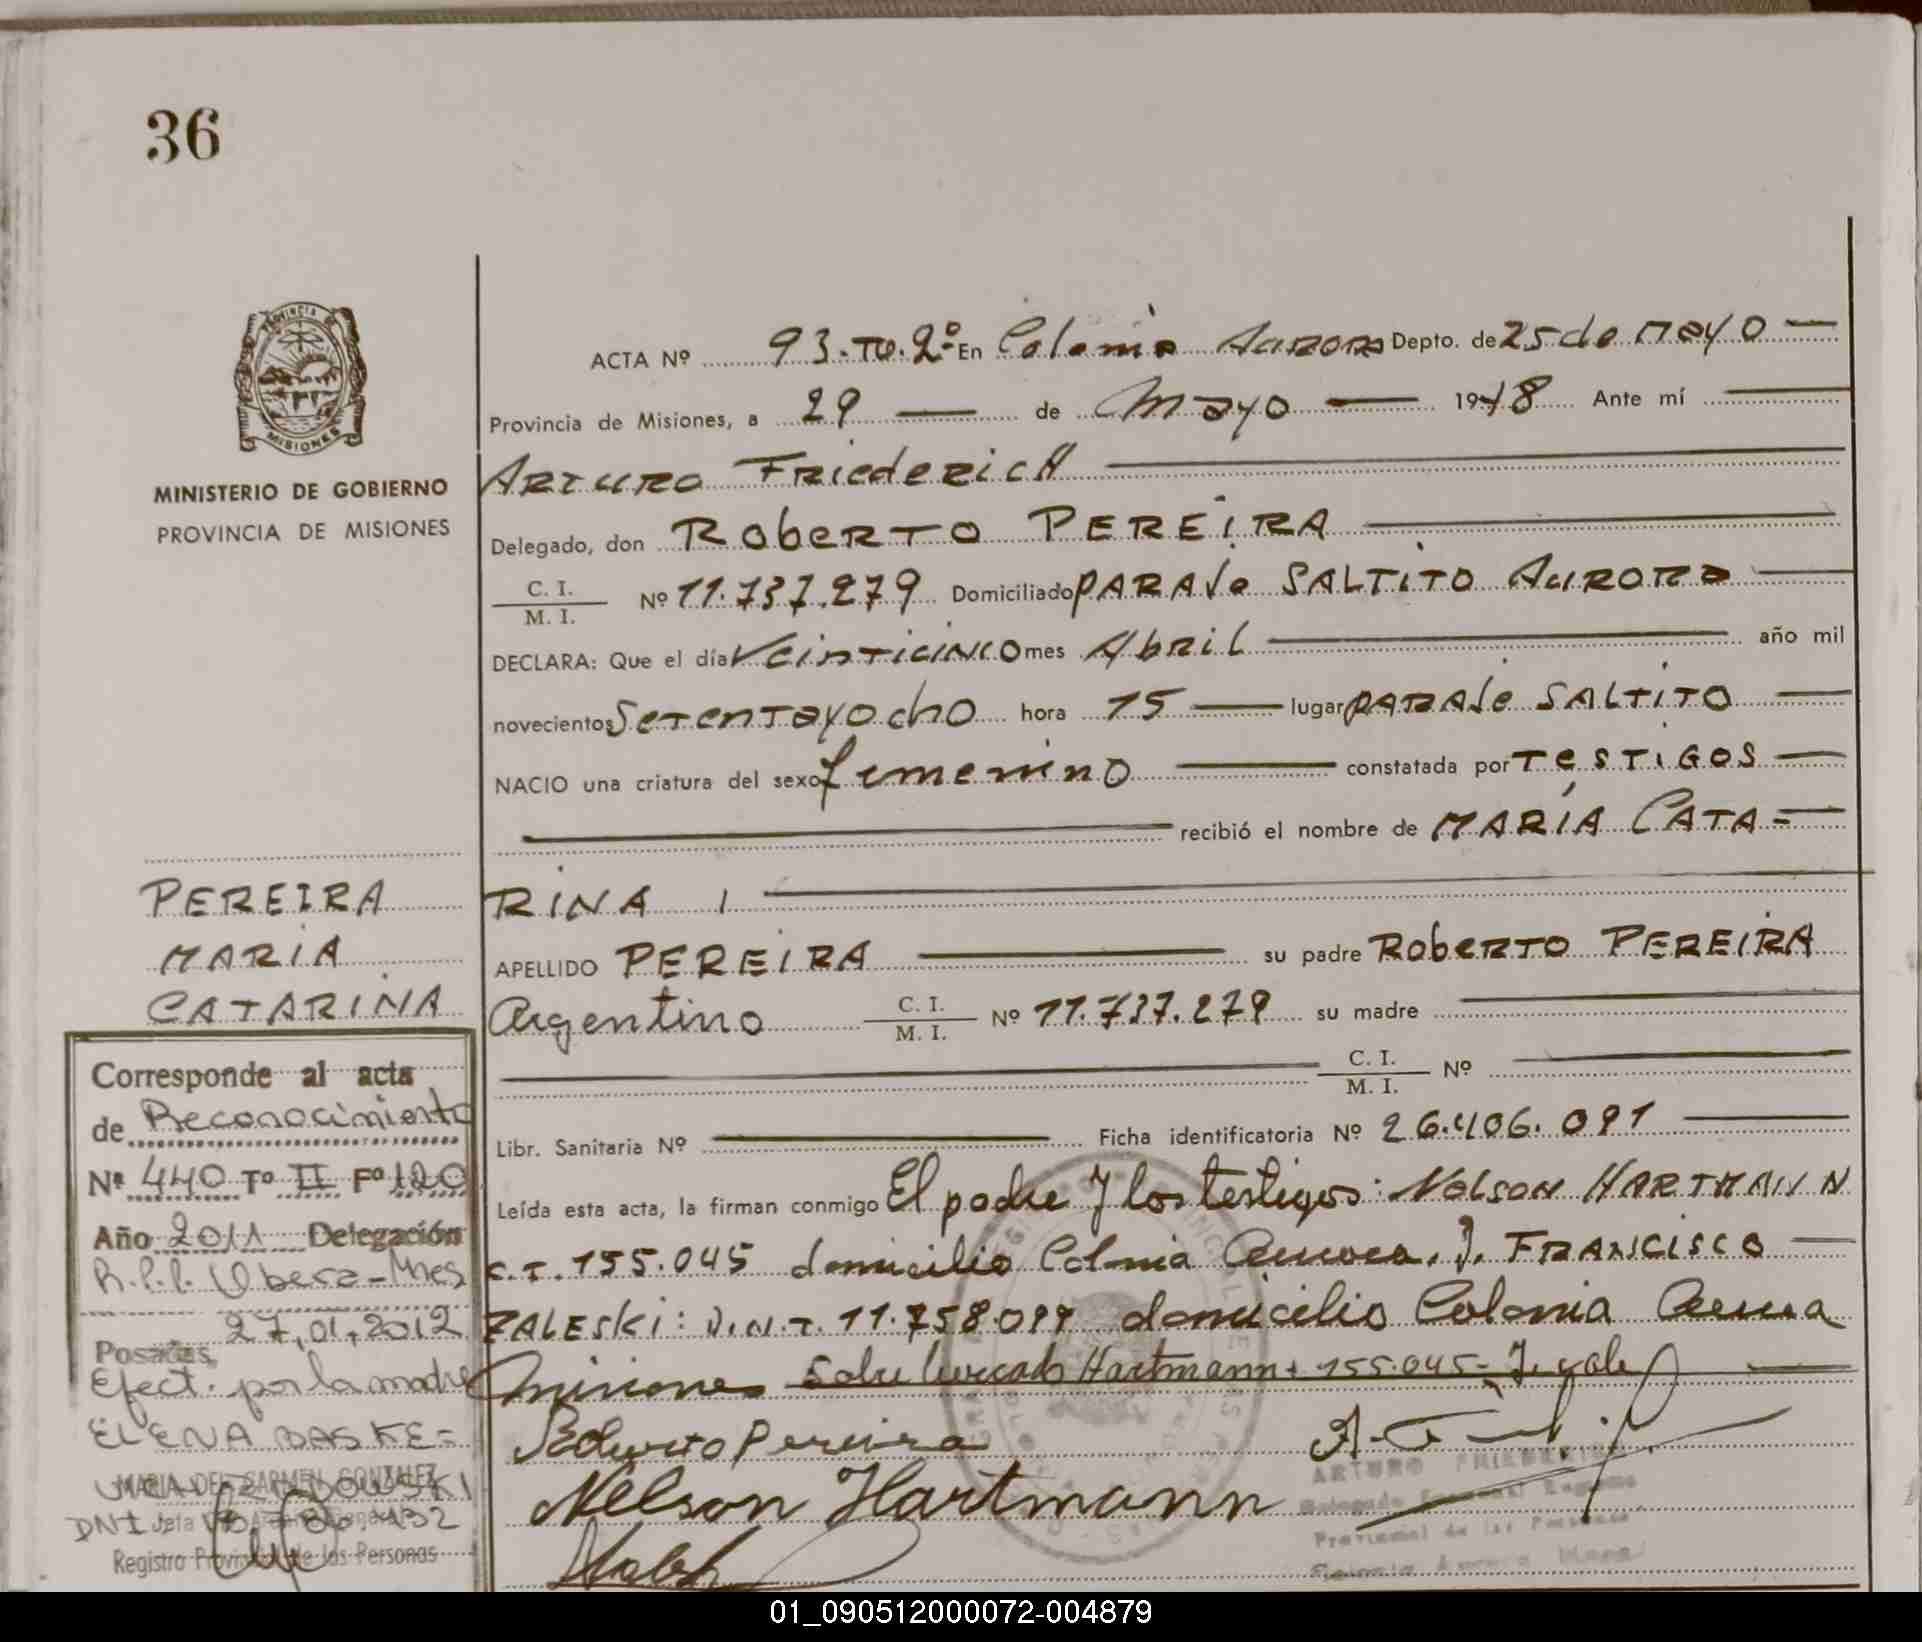 36
PROVINCIA DE
MISIONES
MINISTERIO DE GOBIERNO
PROVINCIA DE MISIONES
ACTA Nº 93-Tº.2º En Colonia Aurora Depto. de 25 de Mayo
Provincia de Misiones, a 29 de Mayo 1978 Ante mí
ARTURO FRIEDERICH
Delegado, don RobERTO PEREiRA
C. I.
M. I.
Nº 11.737.279 Domiciliado PARAJe SALTiTO AuRORA
DECLARA: Que el día Veinticinco mes Abril año mil
novecientos Setentayocho hora 15 lugar PARAJe SALTiTO
NACIO una criatura del sexo femenino constatada por TeSTiGOS
recibió el nombre de MARÍA CATA=
RiNA
APELLIDO PEREiRA su padre RobERTO PEREiRA
Argentino C. I.
M. I. Nº 11.737.279 su madre
C. I.
M. I. Nº
Libr. Sanitaria Nº Ficha identificatoria Nº 26.406.091
Leída esta acta, la firman conmigo El padre y los testigos: NELSON HARTMANN
C.I. 155.045 domicilio Colonia Aurora. y. FRANCISCO
ZALESKi: D.N.I. 11.758.099 domicilio Colonia Aurora
Misiones Sobre borrado Hartmann. 155.045- y. vale
Roberto Pereira
Nelson Hartmann
ARTURO FRIEDERICH
Provincial de las Personas
Colonia Aurora
PEREIRA
MARIA
CATARINA
Corresponde al acta
de Reconocimiento
Nº 440 Tº II Fº 120
Año 2011 Delegación
R.P.P. Obera-Mnes
Posadas, 27,01,2012
Efect. por la madre
ELENA
MARIA DEL CARMEN GONZALEZ
DNI
Registro Provincial de las Personas
01_090512000072-004879